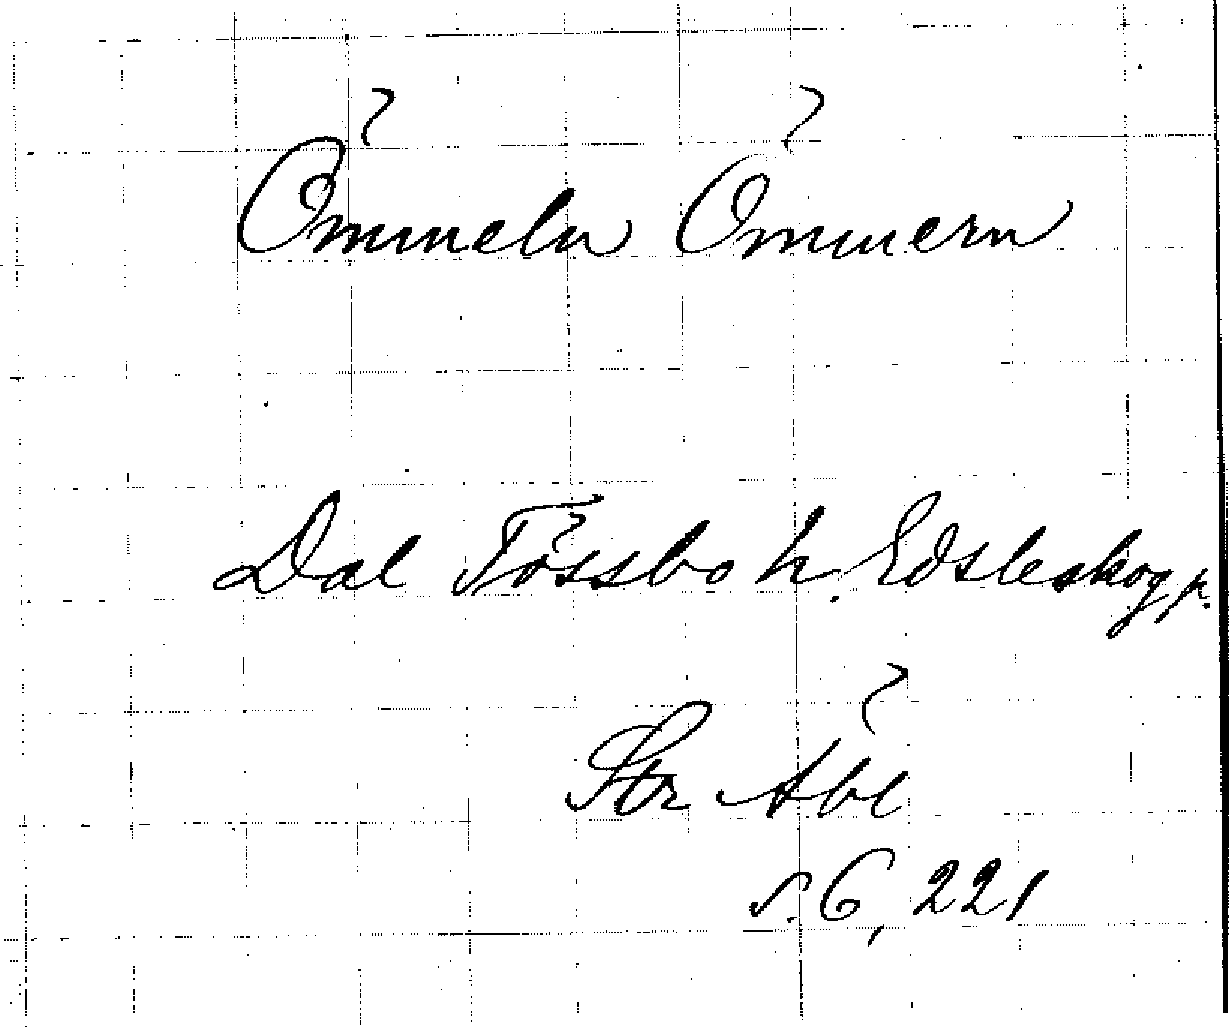 Ömmeln Ömmern
Dal Tössbo h. Edsleskog p.
Str Åbl
s. 6, 221